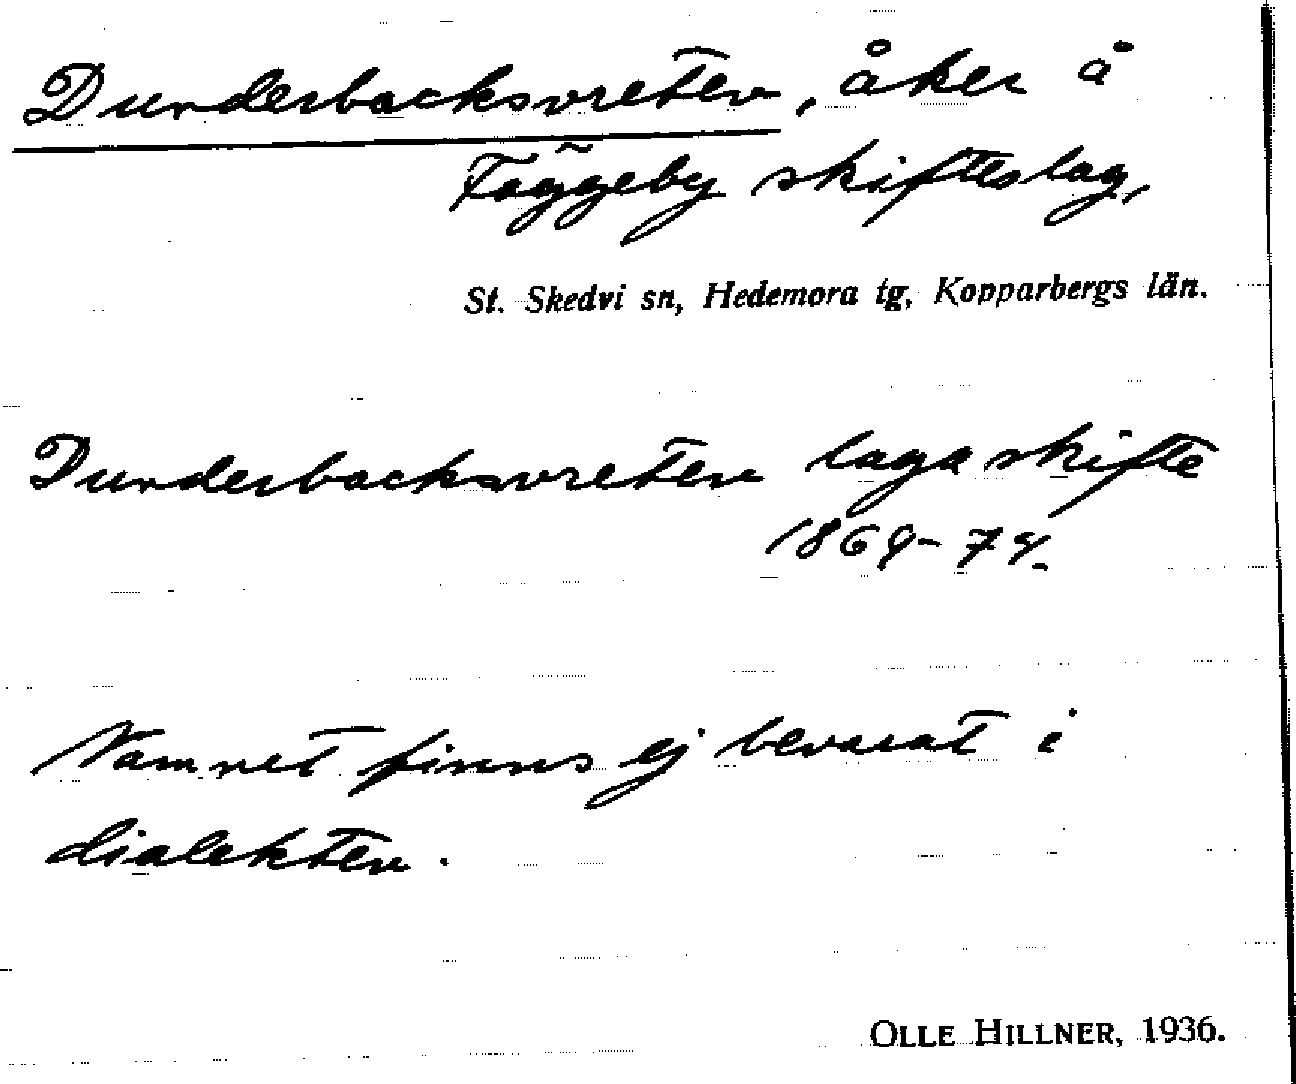 Dunderbacksvreten, åker å
Fäggeby skifteslag,
St. Skedvi sn, Hedemora tg, Kopparbergs län.
Dunderbacksvreten laga skifte
1869-74.
Namnet finns ej bevarat i
dialekten.
OLLE HILLNER, 1936.